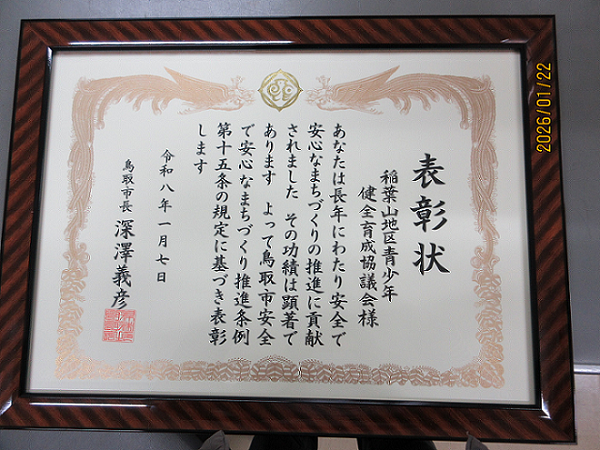 表彰状
稲葉山地区青少年
健全育成協議会様
あなたは長年にわたり安全で
安心なまちづくりの推進に貢献
されました その功績は顕著で
あります よって鳥取市安全
で安心なまちづくり推進条例
第十五条の規定に基づき表彰
します
令和八年一月七日
鳥取市長 深澤義彦
2026/01/22